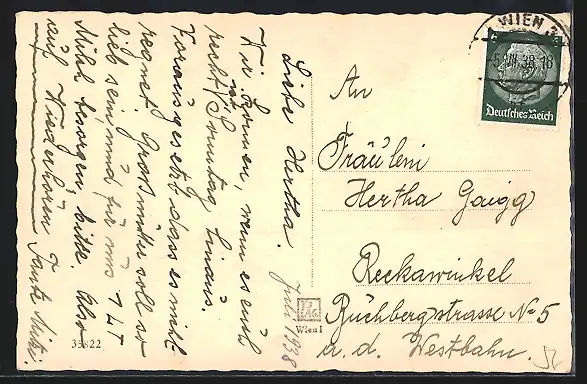 Liebe Hertha.
Juli 1938
Wir kommen, wenn es euch
recht ist Sonntag hinaus.
Vorausgesetzt dass es nicht
regnet. Grossmutter soll so
lieb sein und für uns 1 LT
Milch besorgen, bitte. Also
auf Wiederhören Tante Mitzi.
35822
WIEN
38.-18
Deutsches Reich
An
Fräulein
Hertha Gaigg
Reckawinkel
Büchbergstrasse No 5
a. d. Westbahn.
Wien I